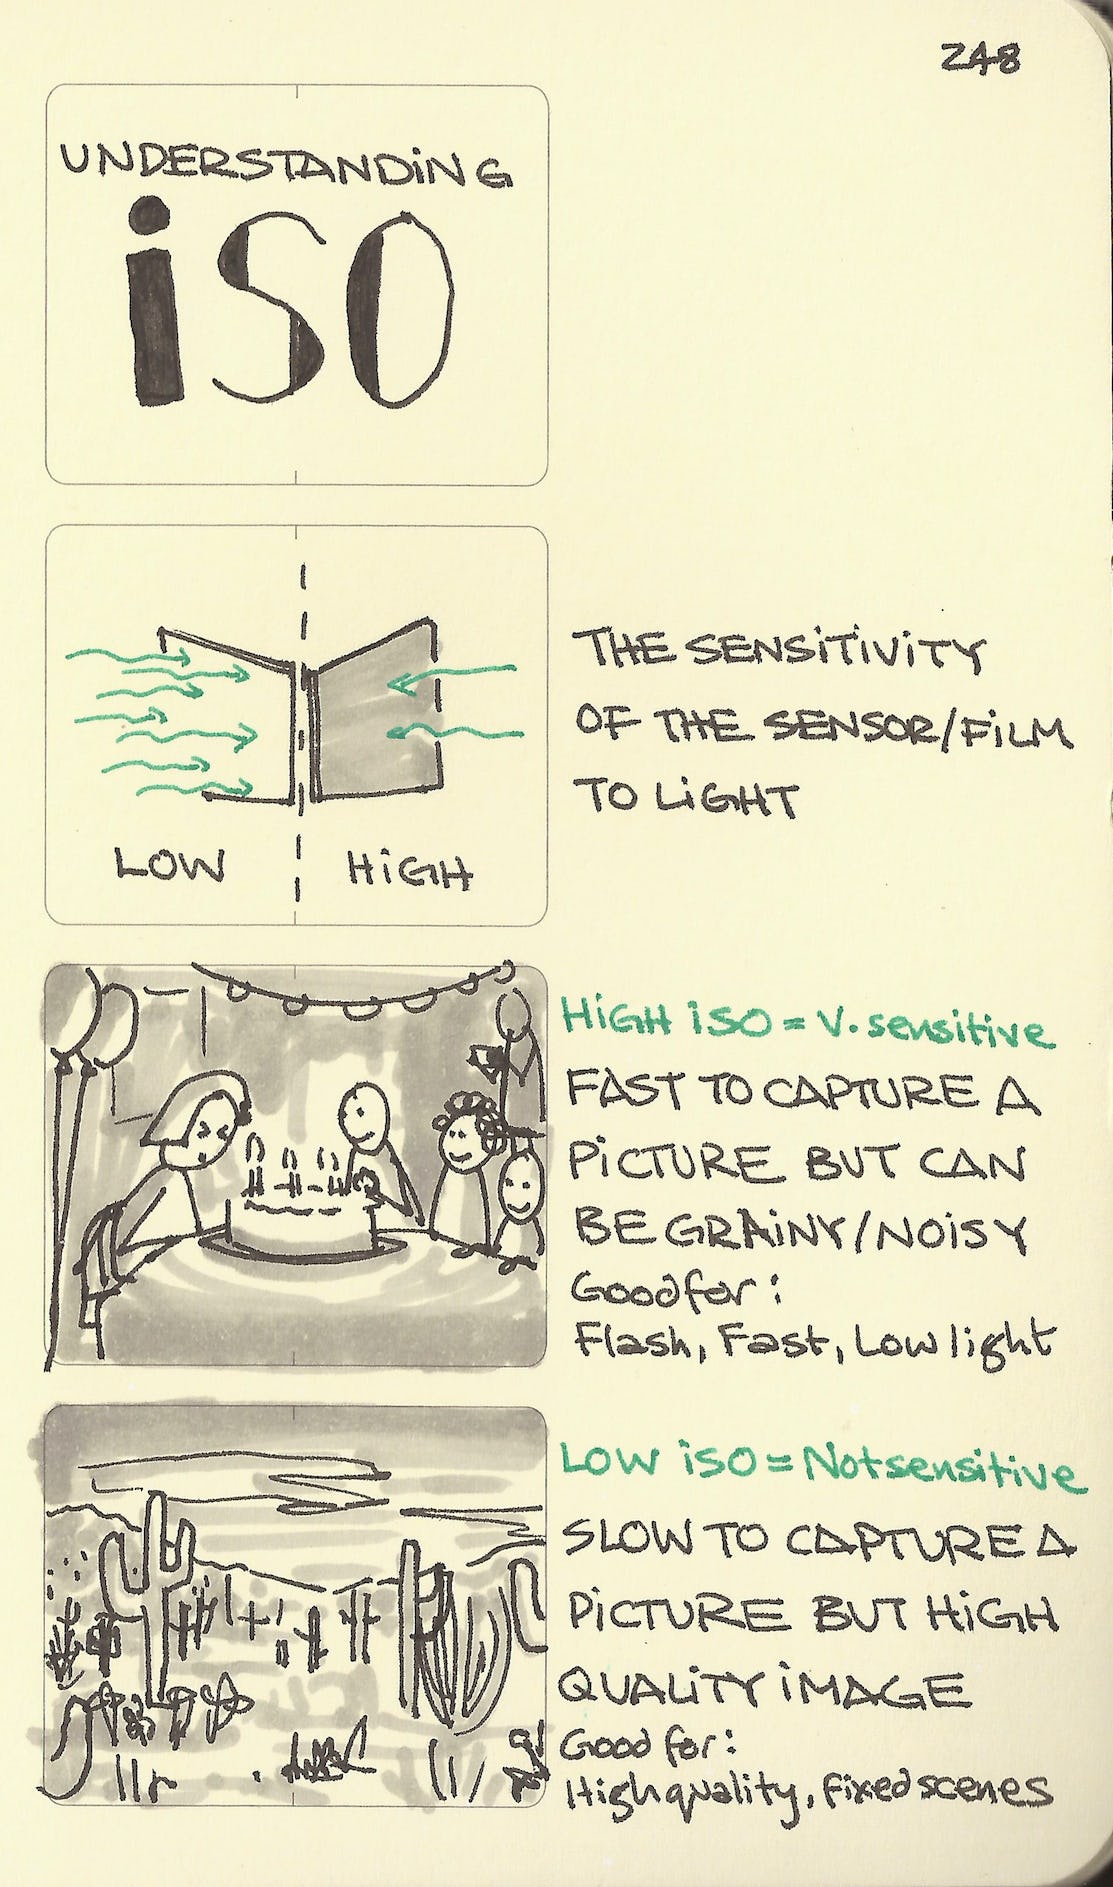 248
UNDERSTANDING
iSO
LOW
HiGH
THE SENSiTiViTY
OF THE SENSOR/FiLM
TO LiGHT
HiGH iSO = V. sensitive
FAST TO CAPTURE A
PiCTURE BUT CAN
BE GRAiNY/NOiSY
Good for:
Flash, Fast, Low light
LOW iSO = Not sensitive
SLOW TO CAPTURE A
PiCTURE BUT HiGH
QUALiTY iMAGE
Good for:
High quality, fixed scenes